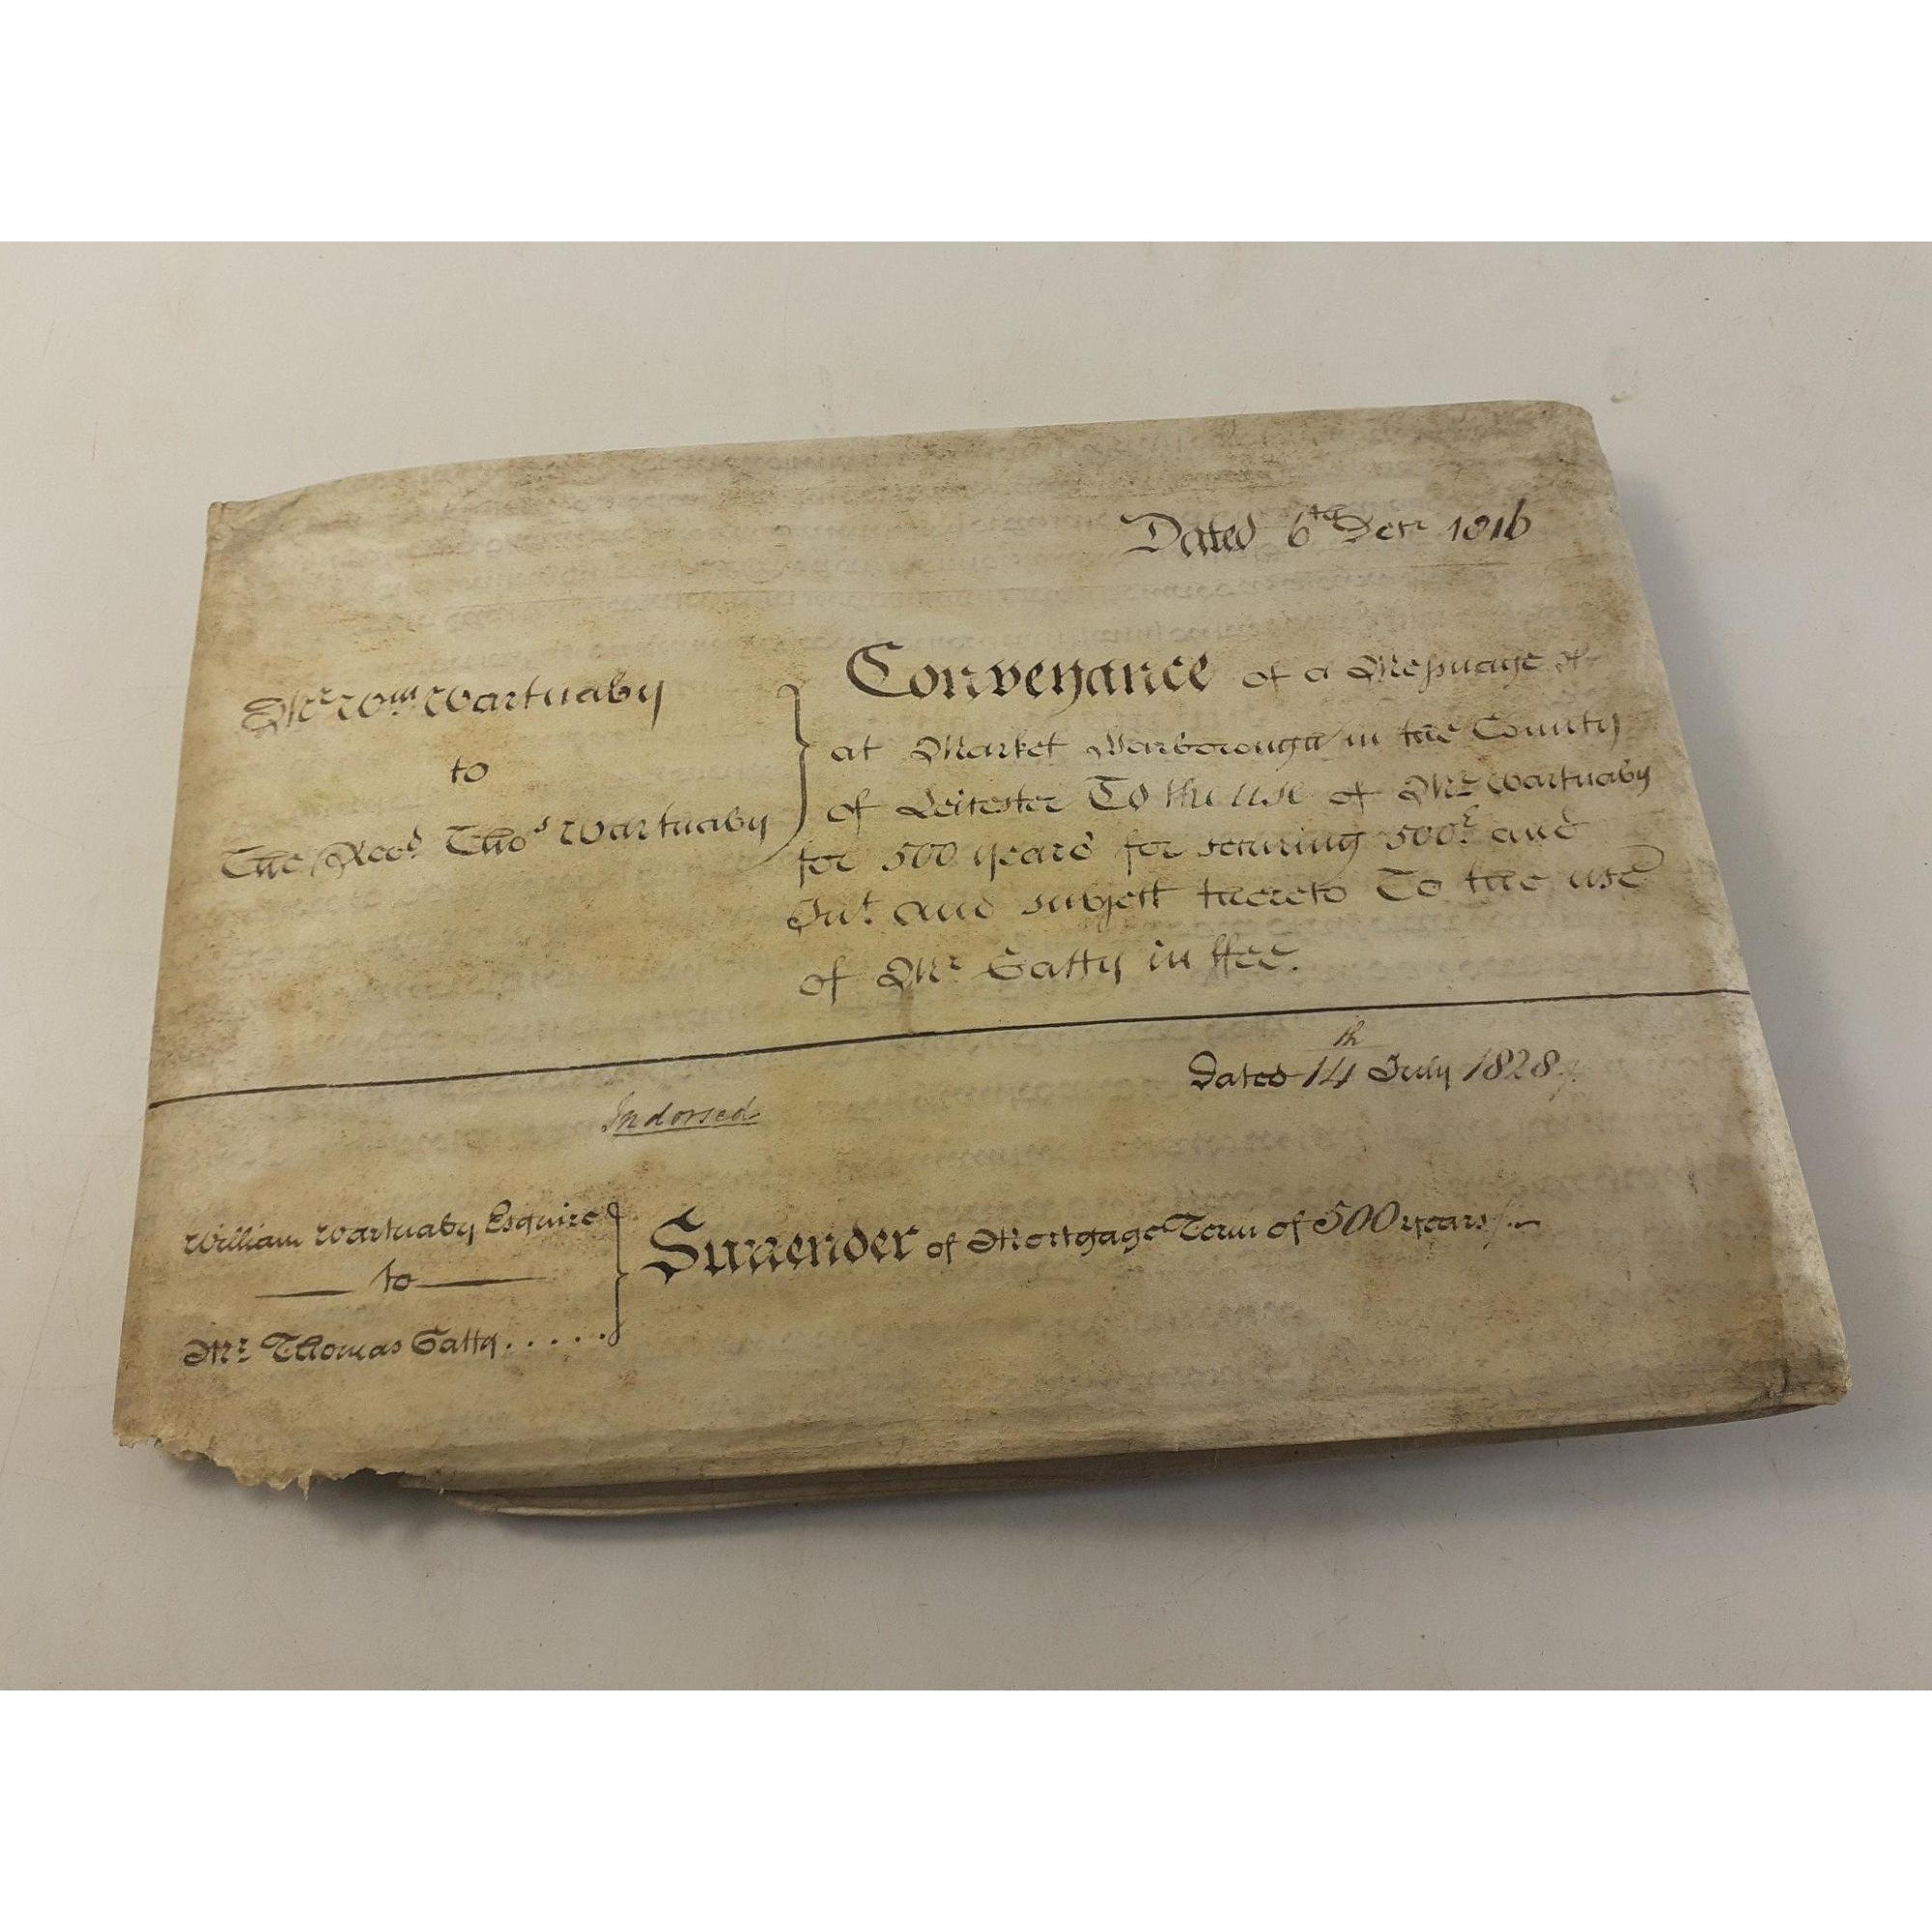 Dated 6th Decr 1816
Mr Wm Wartnaby
to
The Revd Thos Wartnaby
Conveyance of a Messuage &c
at Market Harborough in the County
of Leicester To the use of Mr Wartnaby
for 500 years for securing 500£ and
Int. and subject thereto To the use
of Mr Gatty in ffee.
Dated 14th July 1828
Indorsed
William Wartnaby Esquire
to
Mr Thomas Gatty.....
Surrender of Mortgage Term of 500 years